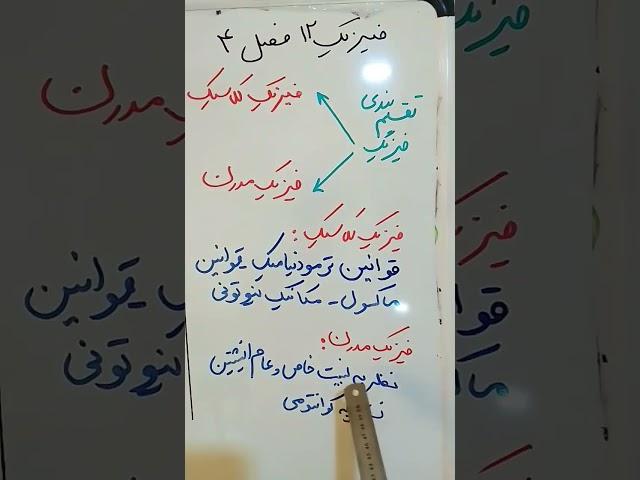 فیزیک ۱۲ فصل ۴
تقسیم بندی
فیزیک
فیزیک کلاسیک
فیزیک مدرن
فیزیک کلاسیک:
قوانین ترمودینامیک - قوانین
ماکسول - مکانیک نیوتونی
فیزیک مدرن:
نظریه نسبیت خاص و عام انیشتین
کوانتومی